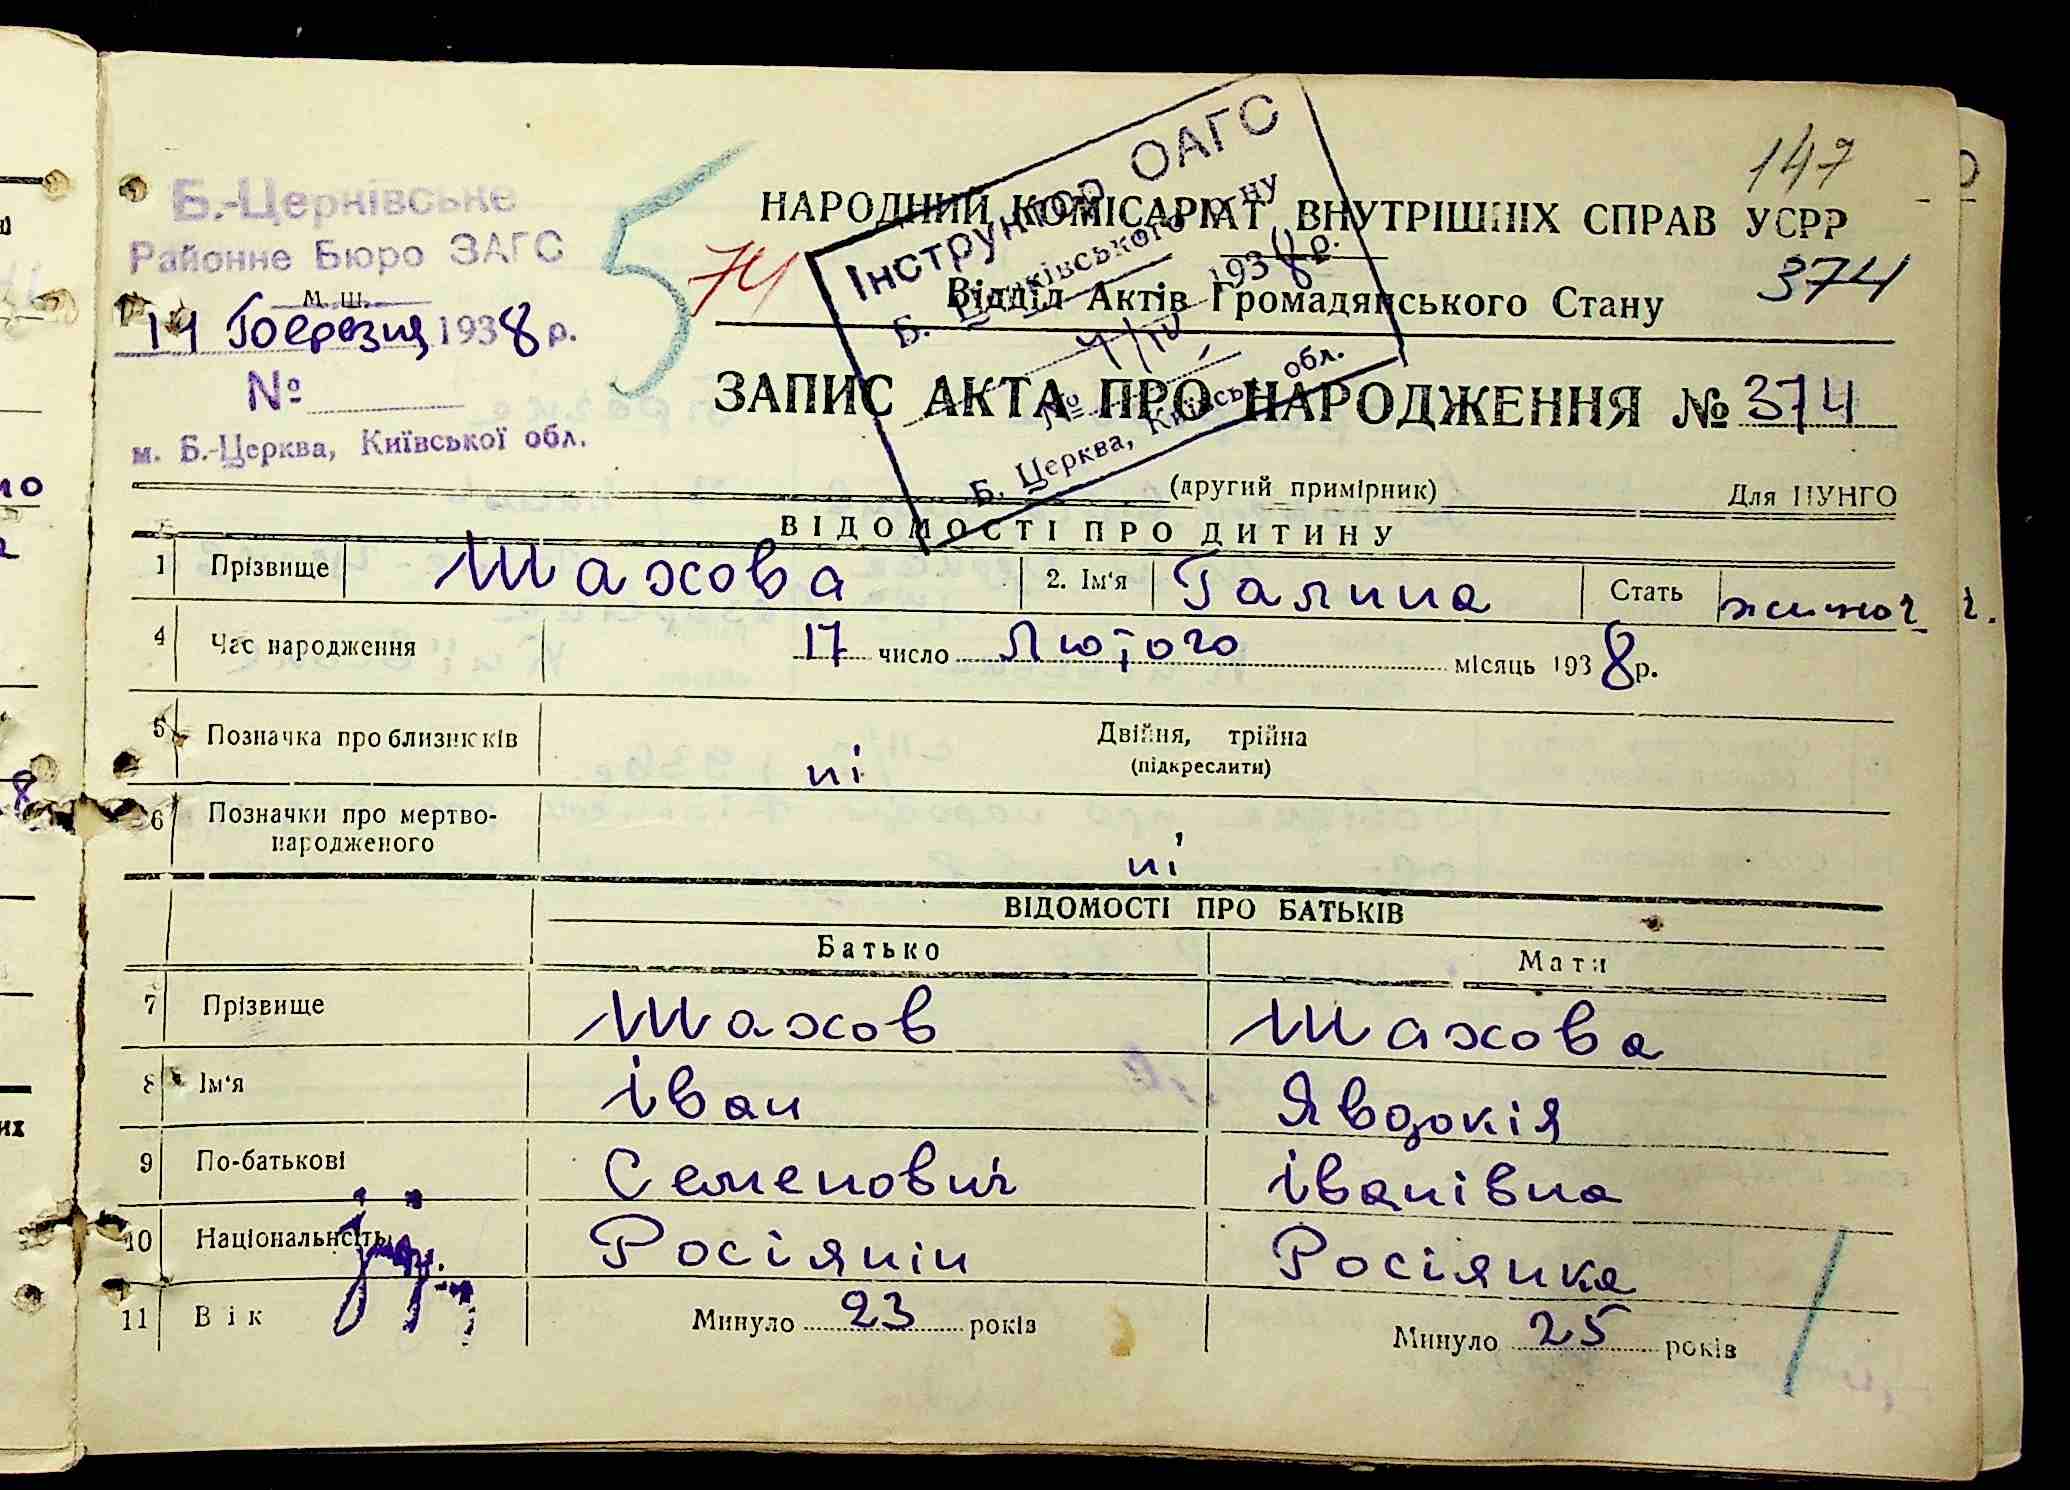 147
Б.-Церківське
Районне Бюро ЗАГС
м. ш.
14 Березня 1938 р.
№
м. Б.-Церква, Київської обл.
5
74
Інструктор ОАГС
Б. Церківського р-ну
4/IV 1938 р.
№
Б. Церква, Київськ. обл.
НАРОДНИЙ КОМІСАРІАТ ВНУТРІШНІХ СПРАВ УСРР
374
Відділ Актів Громадянського Стану
ЗАПИС АКТА ПРО НАРОДЖЕННЯ № 374
(другий примірник) Для ЦУНГО
ВІДОМОСТІ ПРО ДИТИНУ
1 Прізвище Шахова 2. Ім'я Галина Стать жиноч
4 Час народження 17 число Лютого місяць 1938 р.
5 Позначка про близнюків ні Двійня, трійна
(підкреслити)
6 Позначки про мертво-
народженого ні
ВІДОМОСТІ ПРО БАТЬКІВ
Батько Мати
7 Прізвище Шахов Шахова
8 Ім'я Іван Явдокія
9 По-батькові Семенович Іванівна
10 Національність Росіянін Росіянка
11 Вік Минуло 23 років Минуло 25 років